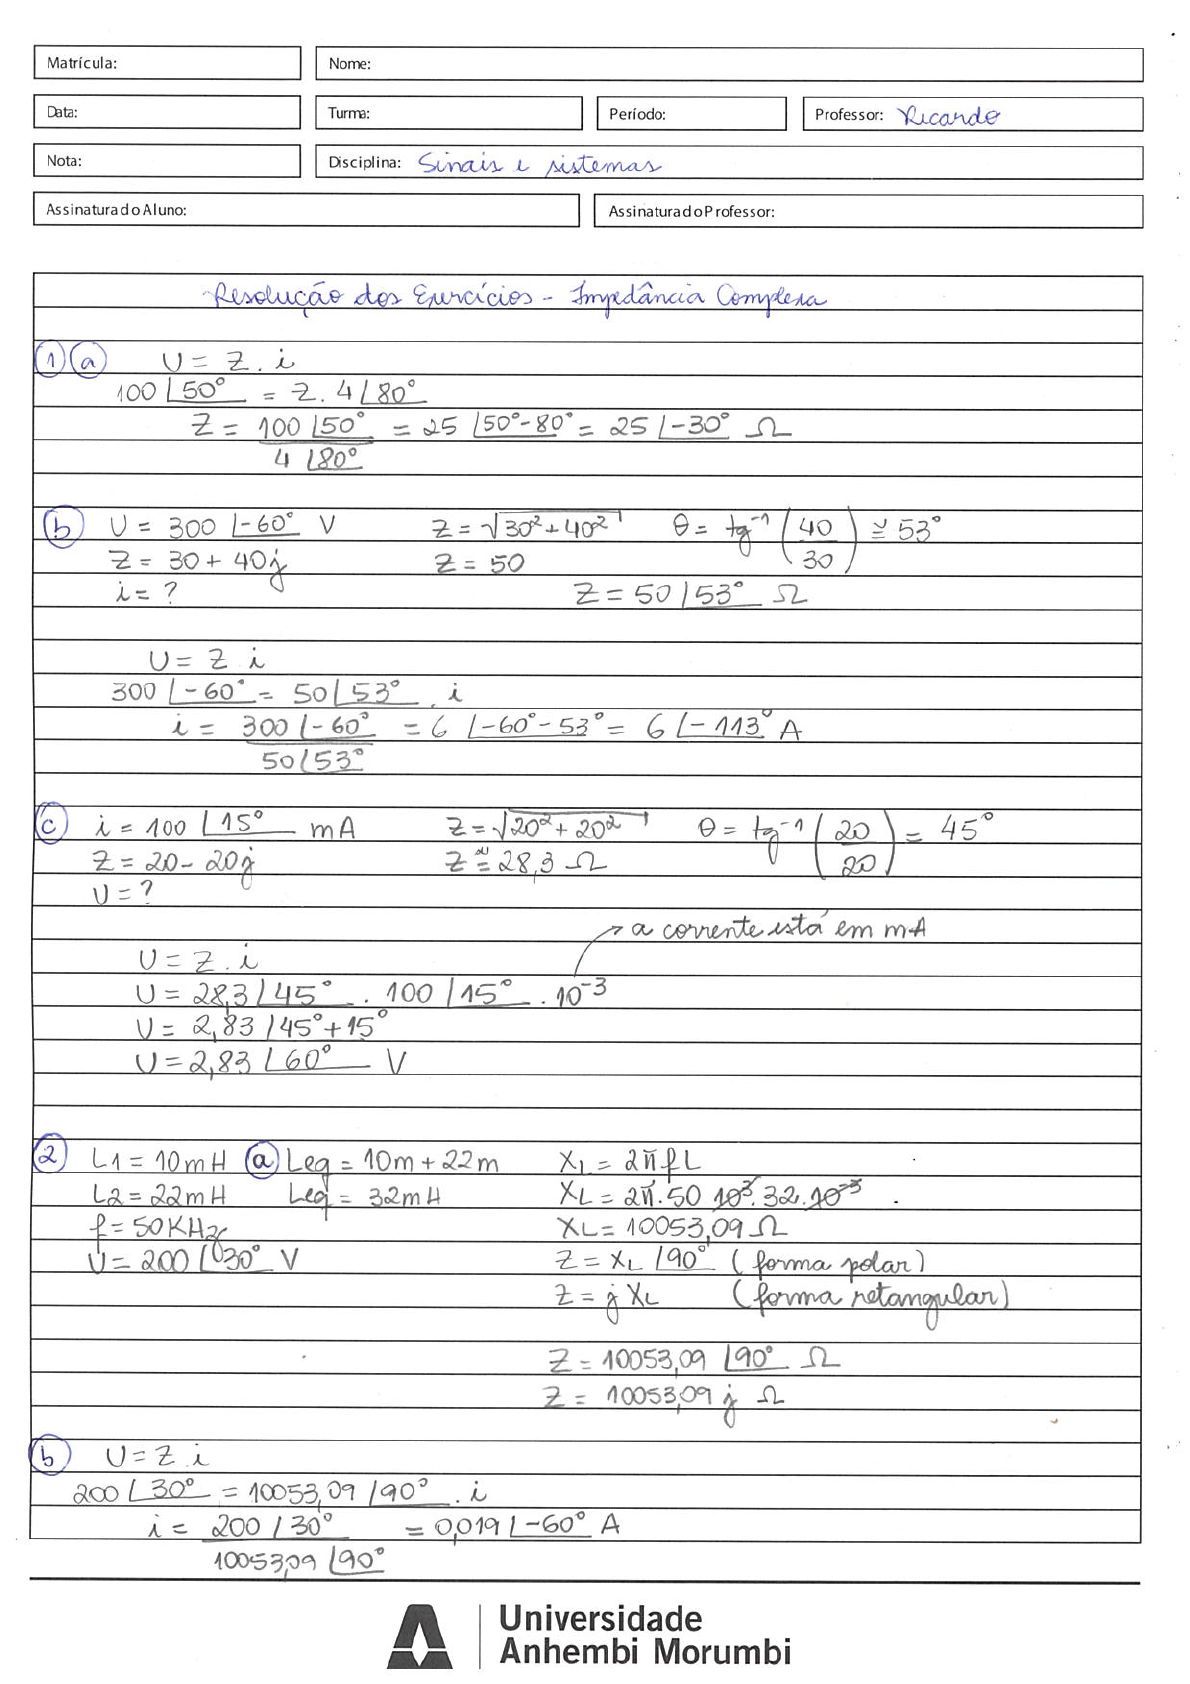 Matrícula: Nome:
Data: Turma: Período: Professor: Ricardo
Nota: Disciplina: Sinais e sistemas
Assinatura do Aluno: Assinatura do Professor:
Resolução dos Exercícios - Impedância Complexa
1 a U = Z . i
100 ∠50° = Z . 4 ∠80°
Z = 100 ∠50° / 4 ∠80° = 25 ∠50°-80° = 25 ∠-30° Ω
b U = 300 ∠-60° V Z = √30² + 40² θ = tg⁻¹ (40/30) ≅ 53°
Z = 30 + 40j Z = 50
i = ? Z = 50 ∠53° Ω
U = Z i
300 ∠-60° = 50 ∠53° . i
i = 300 ∠-60° / 50 ∠53° = 6 ∠-60°-53° = 6 ∠-113° A
c i = 100 ∠15° mA Z = √20² + 20² θ = tg⁻¹ (20/20) = 45°
Z = 20 - 20j Z ≅ 28,3 Ω
U = ?
→ a corrente está em mA
U = Z . i
U = 28,3 ∠45° . 100 ∠15° . 10⁻³
U = 2,83 ∠45°+15°
U = 2,83 ∠60° V
2 L1 = 10mH a Leq = 10m + 22m XL = 2πfL
L2 = 22mH Leq = 32mH XL = 2π.50 10³.32.10⁻³
f = 50KHz XL = 10053,09 Ω
U = 200 ∠30° V Z = XL ∠90° (forma polar)
Z = j XL (forma retangular)
Z = 10053,09 ∠90° Ω
Z = 10053,09 j Ω
b U = Z i
200 ∠30° = 10053,09 ∠90° . i
i = 200 ∠30° / 10053,09 ∠90° = 0,019 ∠-60° A
Universidade
Anhembi Morumbi